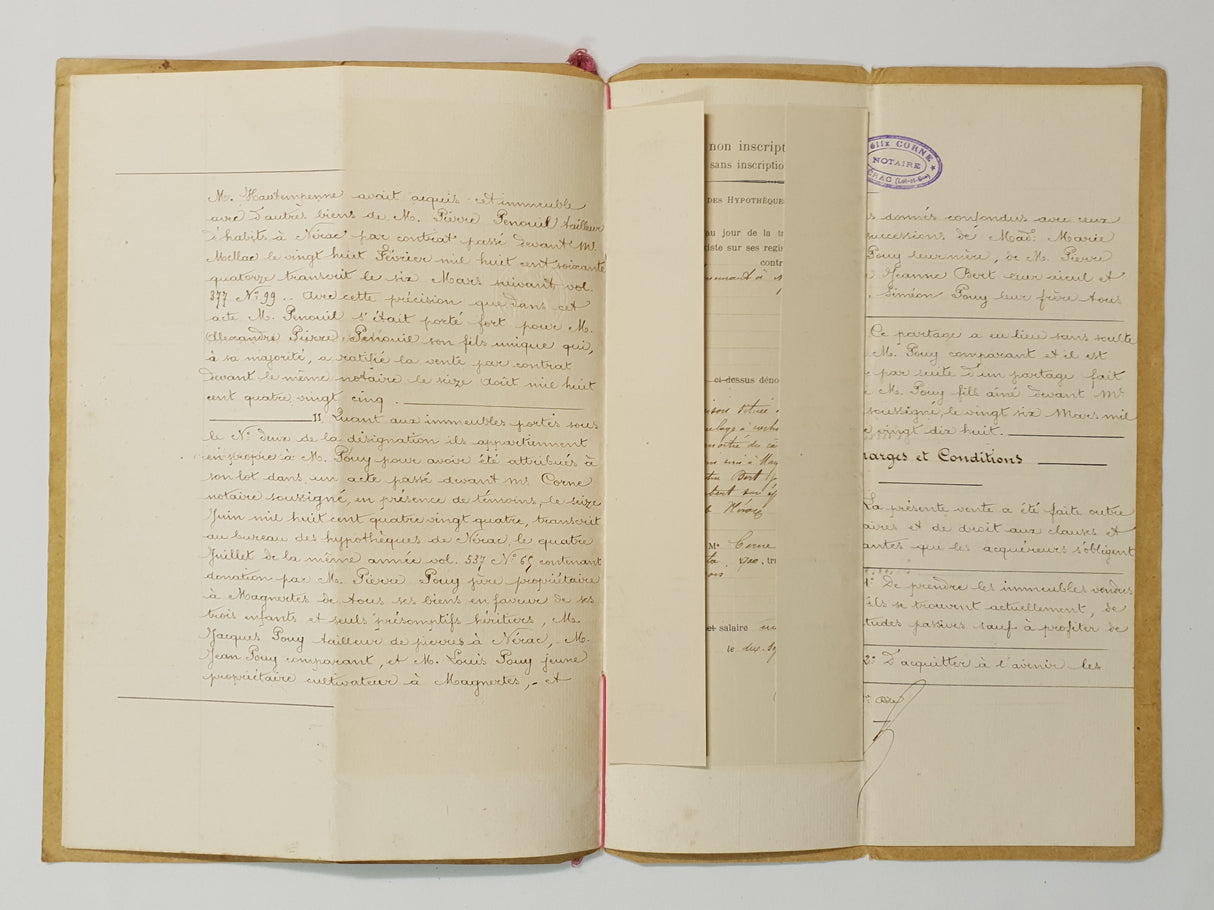 M. Hautempenne avait acquis cet immeuble
avec d'autres biens de M. Pierre Penouil tailleur
d'habits à Nérac par contrat passé devant Me.
Mellac le vingt huit Février mil huit cent soixante
quatorze transcrit le six Mars suivant vol.
377 No. 99 .. Avec cette précision que dans cet
acte M. Penouil s'était porté fort pour M.
Alexandre Pierre Penouil son fils unique qui,
à sa majorité, a ratifié la vente par contrat
devant le même notaire le seize Août mil huit
cent quatre vingt cinq.
II. Quant aux immeubles portés sous
le No. deux de la désignation ils appartiennent
en propre à M. Pouy pour avoir été attribués à
son lot dans un acte passé devant Me. Corne
notaire soussigné, en présence de témoins, le seize
Juin mil huit cent quatre vingt quatre, transcrit
au bureau des hypothèques de Nérac, le quatre
Juillet de la même année vol. 537 No. 65 contenant
donation par M. Pierre Pouy père propriétaire
à Magnertes de tous ses biens en faveur de ses
trois enfants et seuls présomptifs héritiers, M.
Jacques Pouy tailleur de pierres à Nérac, M.
Jean Pouy comparant, et M. Louis Pouy jeune
propriétaire cultivateur à Magnertes, - et
non inscript
sans inscriptio
DES HYPOTHÈQUES
au jour de la tr
iste sur ses regis
contr
ci-dessus déno
Bert
Nérac
Me Corne
et salaire
le
élix CORNE
NOTAIRE
ÉRAC (Lot-et-Gne)
s donnés confondus avec ceux
successions de Made. Marie
Pouy leur mère, de M. Pierre
Jeanne Bert leur aïeul et
Siméon Pouy leur frère tous
Ce partage a eu lieu sans soulte
M. Pouy comparant et il est
par suite d'un partage fait
M. Pouy fils aîné devant Me.
soussigné, le vingt six Mars mil
vingt dix huit.
harges et Conditions
La présente vente a été faite outre
aires et de droit aux clauses et
antes que les acquéreurs s'obligent
1o. De prendre les immeubles vendus
ils se trouvent actuellement, de
tudes passives sauf à profiter de
2o. D'acquitter à l'avenir les